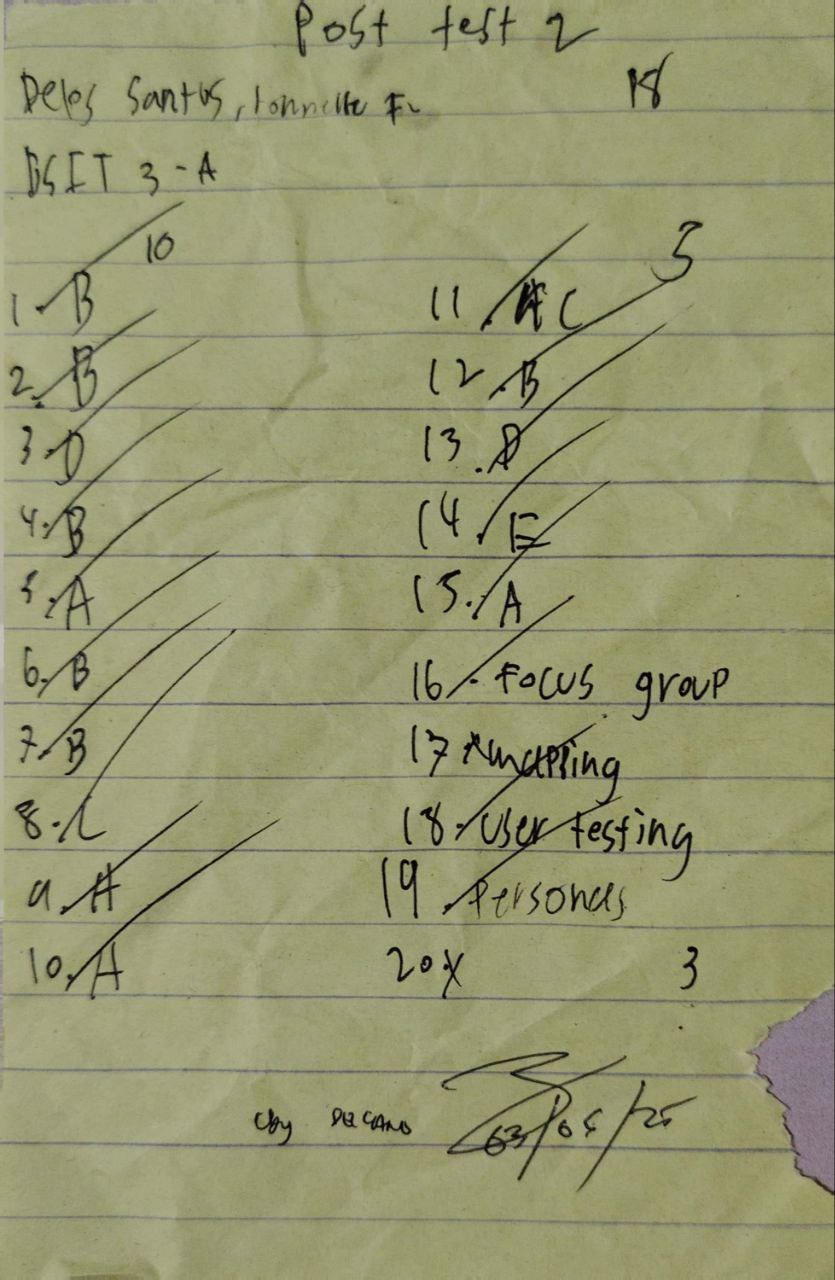 Post test 2
Delos Santos, F.
18
BSIT 3-A
10
1. B
2. B
3. D
4. B
5. A
6. B
7. B
8. C
9. A
10. A
5
11. C
12. B
13. D
14. E
15. A
16. Focus group
17 mapping
18. User testing
19. Personas
20. X
3
03/05/25